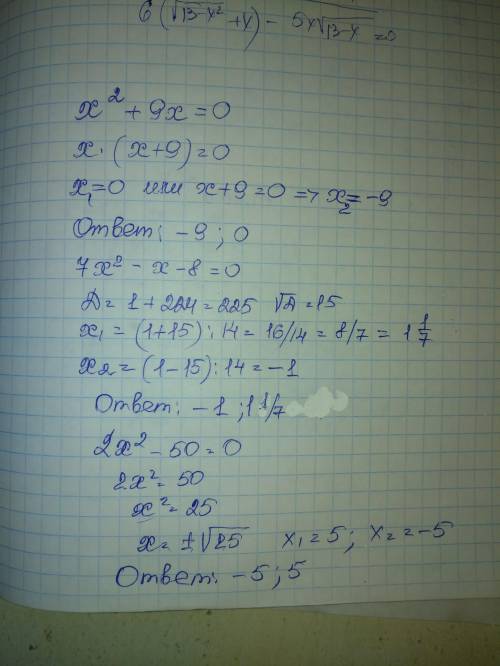 6(√13-y² + y) - 5y√13-y =0
x² + 9x = 0
x·(x+9)=0
x₁=0 или x+9=0 => x₂=-9
Ответ: -9; 0
7x² - x - 8 = 0
Д= 1+224=225 √Д=15
x₁ = (1+15):14 = 16/14 = 8/7 = 1 1/7
x₂ = (1-15):14 = -1
Ответ: -1; 1 1/7
2x² - 50 = 0
2x² = 50
x² = 25
x = ±√25 x₁=5; x₂=-5
Ответ: -5; 5